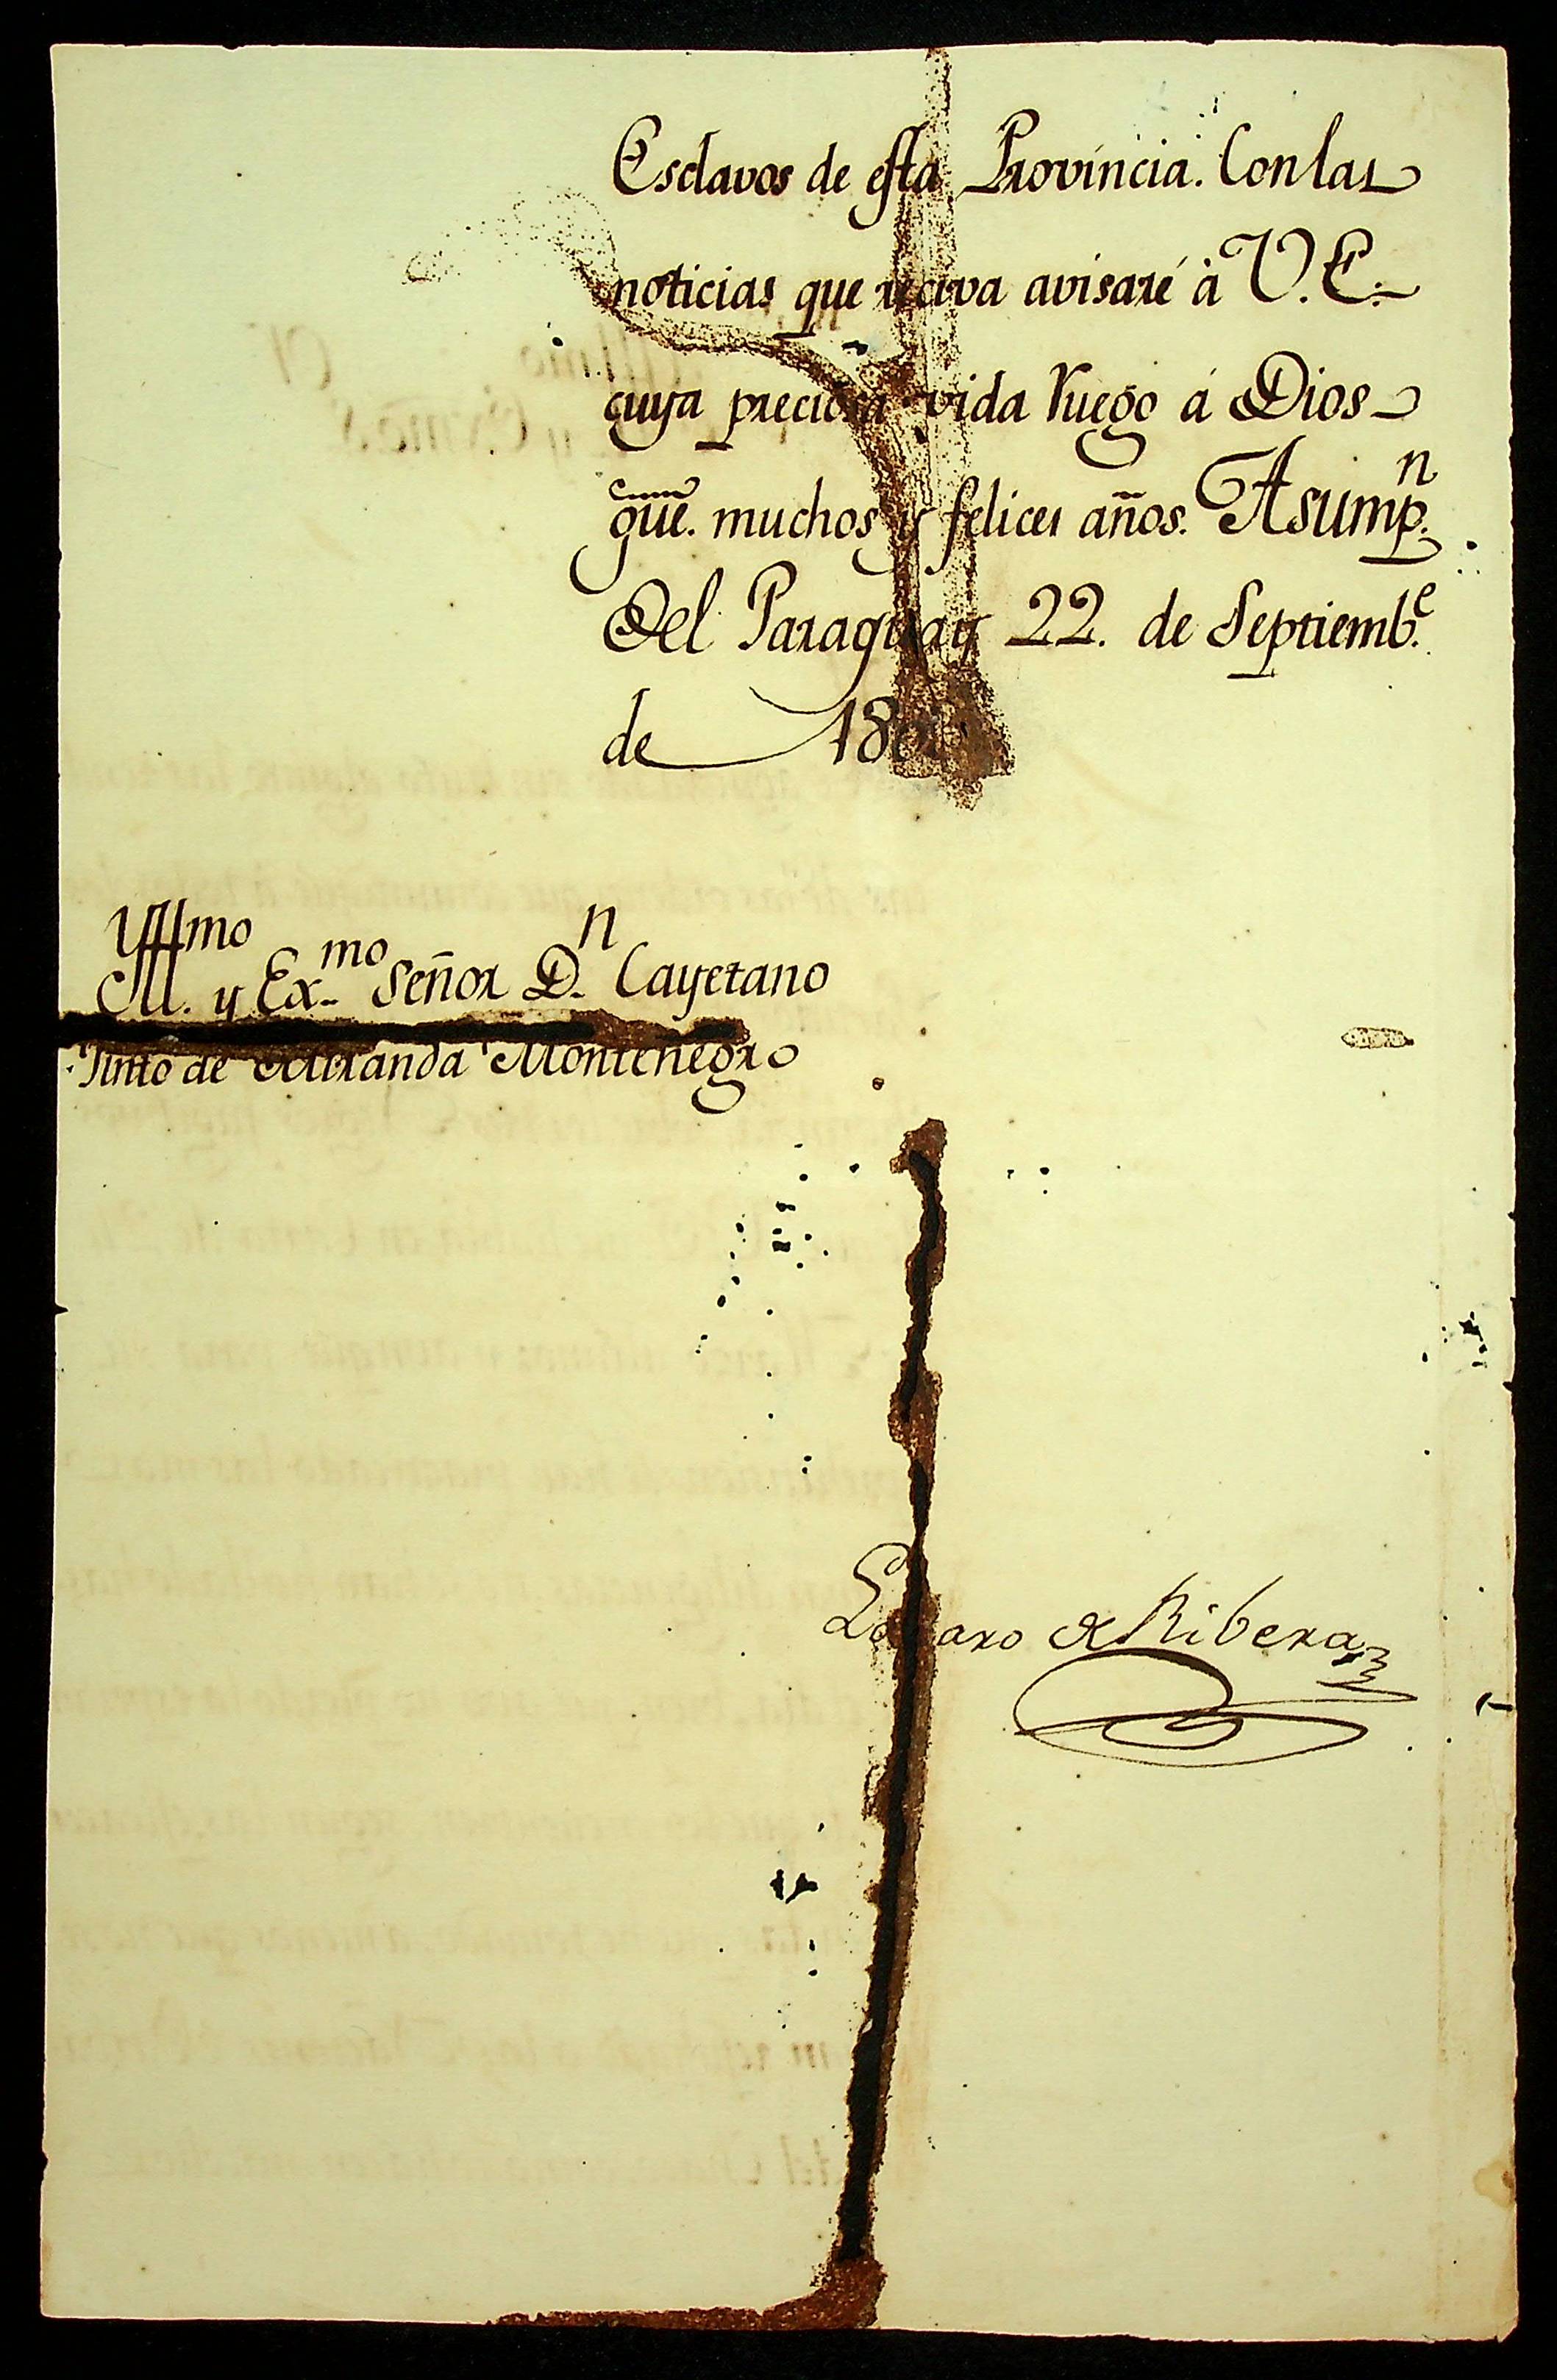 Esclavos de esta Provincia. Con las
noticias que reciva avisaré à V. E.
cuya preciosa vida ruego á Dios
gue. muchos y felices años. Asumpn.
Del Paraguay 22. de Septiembe.
de
Yllmo
M. y Exmo Señor Dn. Cayetano
Pinto de Miranda Montenegro
Lazaro de Ribera